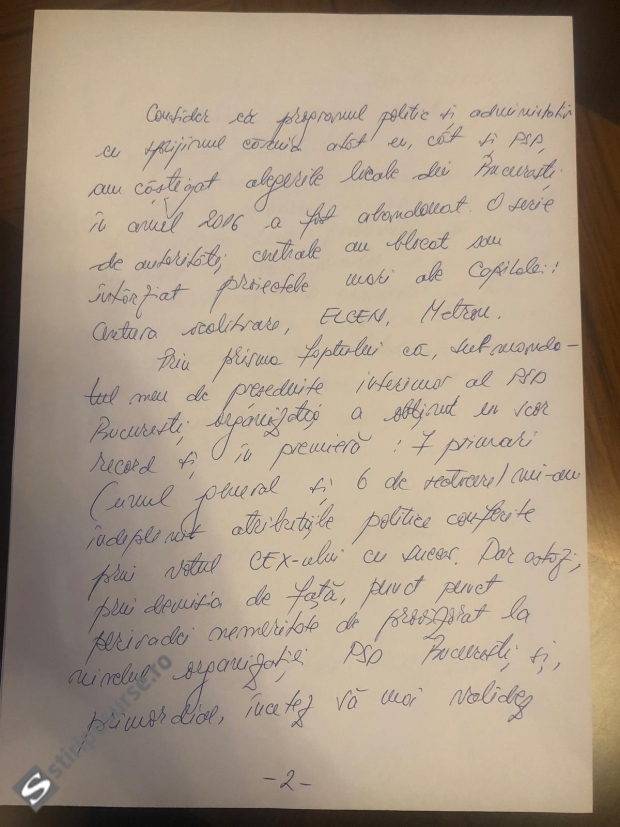 Consider că programul politic și administrativ
cu sprijinul căruia atât eu, cât și PSD,
am câștigat alegerile locale din București
în anul 2016 a fost abandonat. O serie
de autorități centrale au blocat sau
întârziat proiectele mari ale Capitalei:
Centura ocolitoare, ELCEN, Metrou.
Prin prisma faptului că, sub manda-
tul meu de președinte interimar al PSD
București, organizația a obținut un scor
record și în premieră: 7 primari
(unul general și 6 de sectoare) mi-am
îndeplinit atribuțiile politice conferite
prin votul CEX-ului cu succes. Dar astăzi,
prin demisia de față, punct punct
perioadei nemeritate de provizorat la
nivelul organizației PSD București și,
primordial, încetez să mai validez
- 2 -
stiripesurse.ro
S